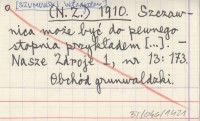 [SZUMOWSKI
(N. Z.) 1910. Szczaw-
nica może być do pewnego
stopnia przykładem [...]. -
Nasze Zdroje 1, nr 13: 173.
Obchód grunwaldzki.